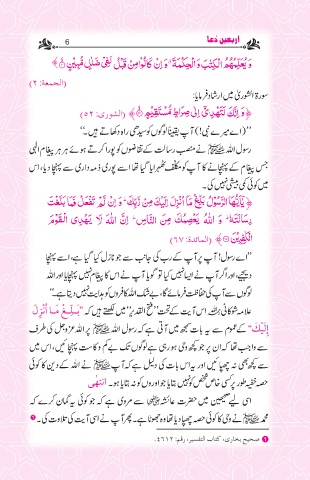 اربعین دُعا
6
وَ يُعَلِّمُهُمُ الْكِتٰبَ وَ الْحِكْمَةَ ۗ وَ اِنْ كَانُوْا مِنْ قَبْلُ لَفِيْ ضَلٰلٍ مُّبِيْنٍ ﴾
(الجمعة: ٢)
سورۃ الشوریٰ میں ارشاد فرمایا:
﴿ وَ اِنَّكَ لَتَهْدِيْۤ اِلٰى صِرَاطٍ مُّسْتَقِيْمٍ ﴾ (الشورى: ٥٢)
’’(اے میرے نبی!) آپ یقیناً لوگوں کو سیدھی راہ دکھاتے ہیں۔‘‘
رسول اللہ ﷺ نے منصب رسالت کے تقاضوں کو پورا کرتے ہوئے ہر ہر پیغام الٰہی
جس پیغام کے پہنچانے کا آپ کو مکلف ٹھہرایا گیا تھا اسے پوری ذمہ داری سے پہنچا دیا، اس
میں کوئی کمی بیشی نہیں کی۔
﴿ يٰۤاَيُّهَا الرَّسُوْلُ بَلِّغْ مَاۤ اُنْزِلَ اِلَيْكَ مِنْ رَّبِّكَ ۗ وَ اِنْ لَّمْ تَفْعَلْ فَمَا بَلَّغْتَ
رِسَالَتَهٗ ۗ وَ اللّٰهُ يَعْصِمُكَ مِنَ النَّاسِ ۗ اِنَّ اللّٰهَ لَا يَهْدِي الْقَوْمَ
الْكٰفِرِيْنَ ﴾ (المائدة: ٦٧)
’’اے رسول! آپ پر آپ کے رب کی جانب سے جو نازل کیا گیا ہے، اسے پہنچا
دیجیے، اور اگر آپ نے ایسا نہیں کیا تو گویا آپ نے اس کا پیغام نہیں پہنچایا اور اللہ
لوگوں سے آپ کی حفاظت فرمائے گا، بے شک اللہ کافروں کو ہدایت نہیں دیتا ہے۔‘‘
علامہ شوکانی اس آیت کے تحت ’’فتح القدیر‘‘ میں لکھتے ہیں کہ ’’بَلِّغْ مَا اُنْزِلَ
اِلَيْكَ‘‘ کے عموم سے یہ بات سمجھ میں آتی ہے کہ رسول اللہ ﷺ پر اللہ عزوجل کی طرف
سے واجب تھا کہ ان پر جو کچھ وحی ہو رہی ہے لوگوں تک بے کم و کاست پہنچائیں، اس میں
سے کچھ بھی نہ چھپائیں اور یہ اس بات کی دلیل ہے کہ آپ ﷺ نے اللہ کے دین کا کوئی
حصہ خفیہ طور پر کسی خاص شخص کو نہیں بتایا جو اوروں کو نہ بتایا ہو۔ انتہی
اسی لیے صحیحین میں حضرت عائشہ سے مروی ہے کہ جو کوئی یہ گمان کرے کہ
محمد ﷺ نے وحی کا کوئی حصہ چھپا دیا تھا وہ جھوٹا ہے۔ پھر آپ نے اسی آیت کی تلاوت کی۔ ❶
❶ صحیح بخاری، کتاب التفسیر، رقم: ٤٦١٢.